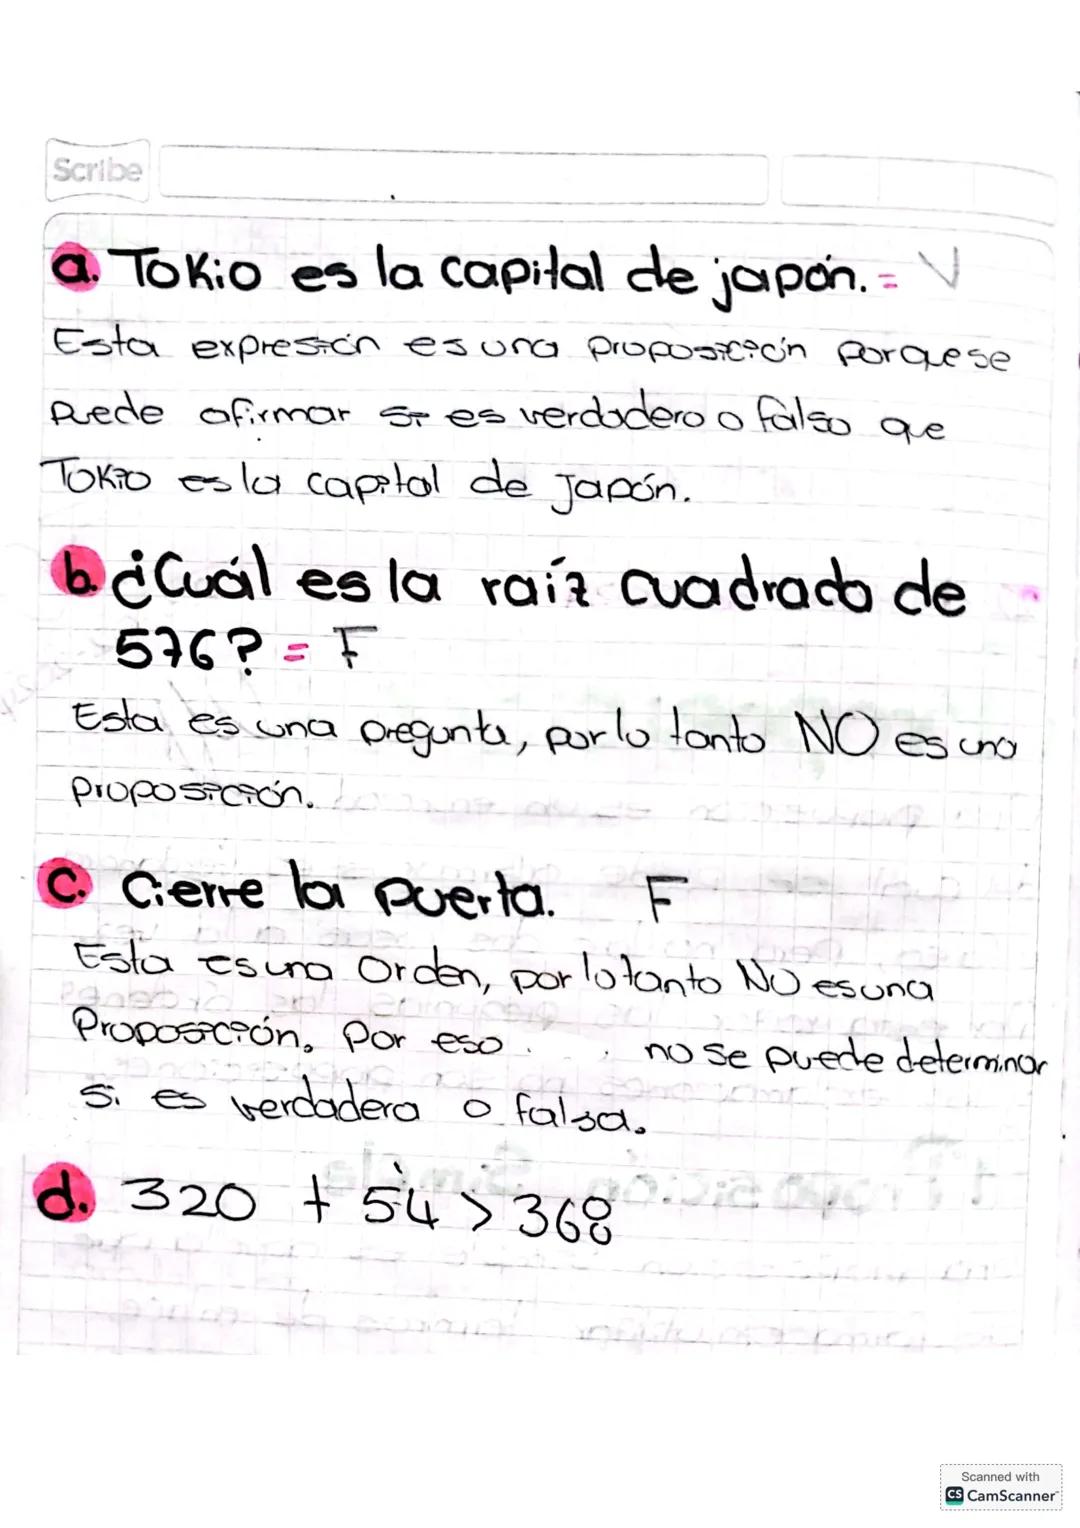 Scribe
a. Tokio es la capital de japón. = V
Esta expresión es una proposición porque se
puede afirmar si es verdadero o falso que
Tokio es la capital de Japón.
b. ¿Cuál es la raíz cuadrada de
576? = F
Esta es una pregunta, por lo tanto NO es una
proposición.
c. Cierre la puerta. F
Esta es una Orden, por lo tanto NO es una
Proposición. Por eso no se puede determinar
si es verdadera o falsa.
d. 320 + 54 > 368
Scanned with
CS CamScanner